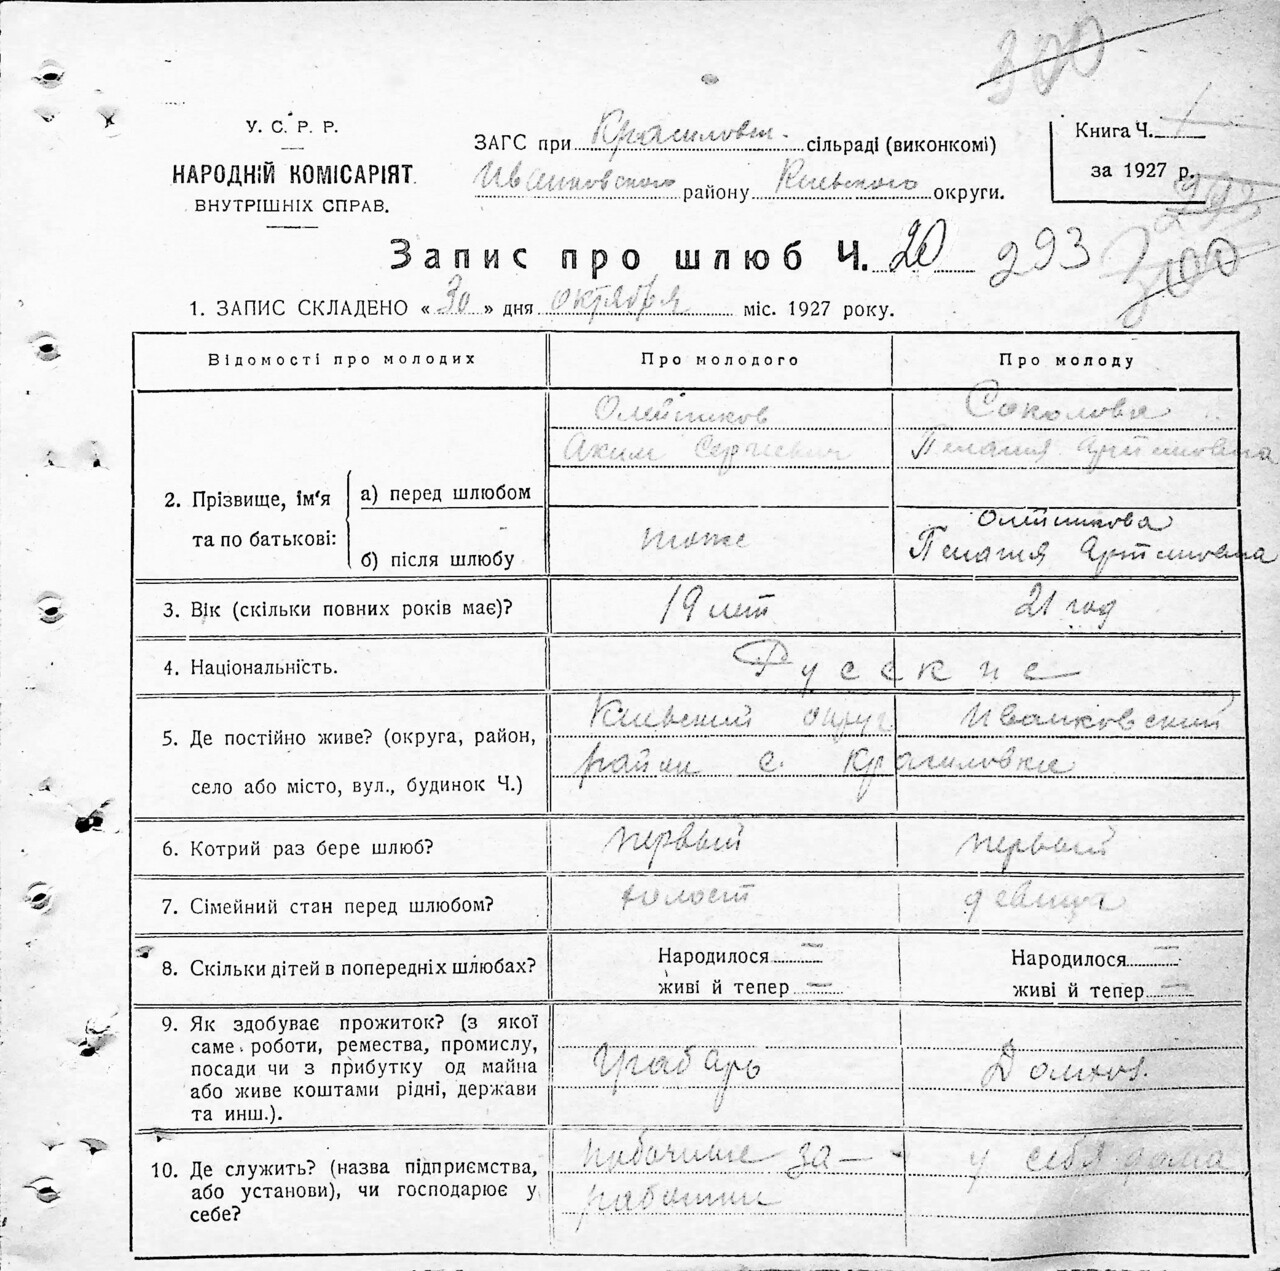 300
У. С. Р. Р.
НАРОДНІЙ КОМІСАРІЯТ
ВНУТРІШНІХ СПРАВ.
ЗАГС при Красиловск. сільраді (виконкомі)
Иванковского району Киевского округи.
Книга Ч. 1
за 1927 р.
293
Запис про шлюб Ч. 20 293
300
1. ЗАПИС СКЛАДЕНО «30» дня октября міс. 1927 року.
Відомості про молодих Про молодого Про молоду
Олейников Соколова
Аким Сергиевич Пелагия Артемовна
2. Прізвище, ім'я та по батькові:
а) перед шлюбом
б) після шлюбу
тоже Олейникова
Пелагия Артемовна
3. Вік (скільки повних років має)? 19 лет 21 год
4. Національність. Русские
5. Де постійно живе? (округа, район,
село або місто, вул., будинок Ч.)
Киевский округ Иванковский
район с. Красиловка
6. Котрий раз бере шлюб? первый первый
7. Сімейний стан перед шлюбом? холост девица
8. Скільки дітей в попередніх шлюбах? Народилося — Народилося —
живі й тепер — живі й тепер —
9. Як здобуває прожиток? (з якої
саме роботи, ремества, промислу,
посади чи з прибутку од майна
або живе коштами рідні, держави
та инш.).
Грабарь Домхоз.
10. Де служить? (назва підприємства,
або установи), чи господарює у
себе?
побочные за-
работки
у себя дома